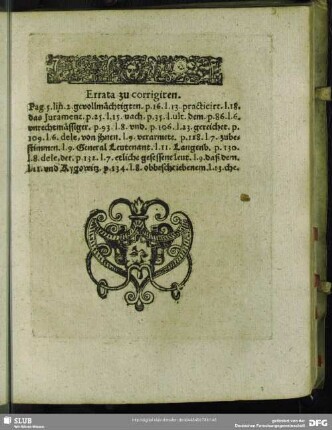 Errata zu corrigiren.
Pag 5. lin. 2. gevollmächtigten. p. 16. l. 13. practicirt. l. 18.
das Jurament. p. 25. l. 13. nach. p. 35. l. ult. dem. p. 86. l. 6.
vnrechtmässiger. p. 93. l. 8. vnd. p. 106. l. 23. gereichet. p.
109. l. 6. dele, von ihnen. l. 9. verarmete. p. 118. l. 7. zubes
stimmen. l. 9. General Leutenant. l. 11. Langenb. p. 130.
l. 8. dele, der. p. 131. l. 7. etliche gesessene leut. l. 9. daß dem.
l. 11. vnd Rygowitz. p. 134. l. 8. obbeschriebenem. l. 13. che.
SLUB
Wir führen Wissen.
gefördert von der
Deutschen Forschungsgemeinschaft
DFG